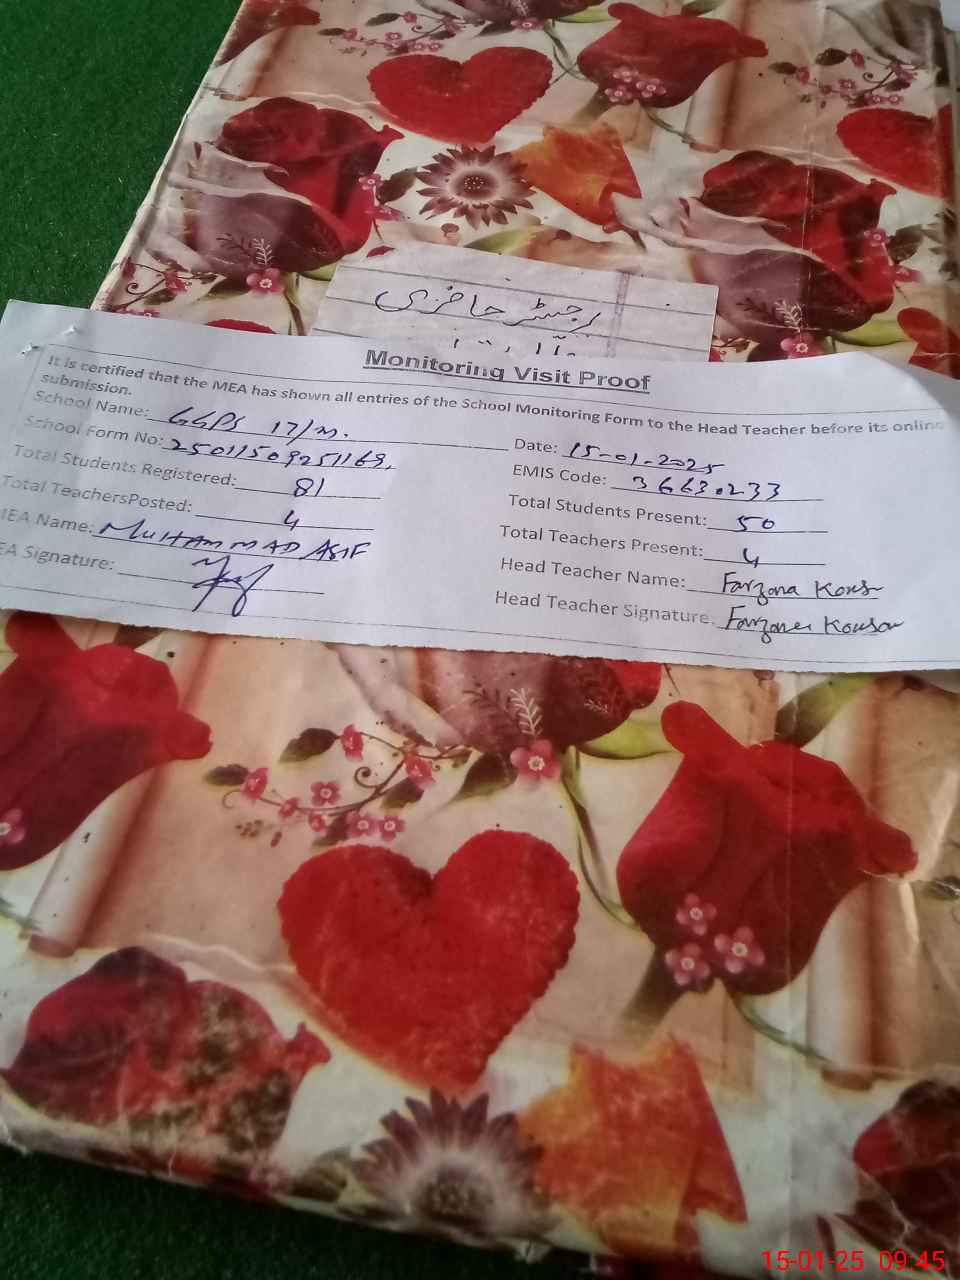 رجسٹر حاضری
Monitoring Visit Proof
It is certified that the MEA has shown all entries of the School Monitoring Form to the Head Teacher before its online
submission.
School Name: GGPS 17/M.
Date: 15-01-2025
School Form No: 25011509251169.
EMIS Code: 3663.233
Total Students Registered: 81
Total Students Present: 50
Total TeachersPosted: 4
Total Teachers Present: 4
MEA Name: MUHAMMAD ASIF
Head Teacher Name: Farzana Kous
EA Signature:
Head Teacher Signature: Farzana Kousar
15-01-25 09:45